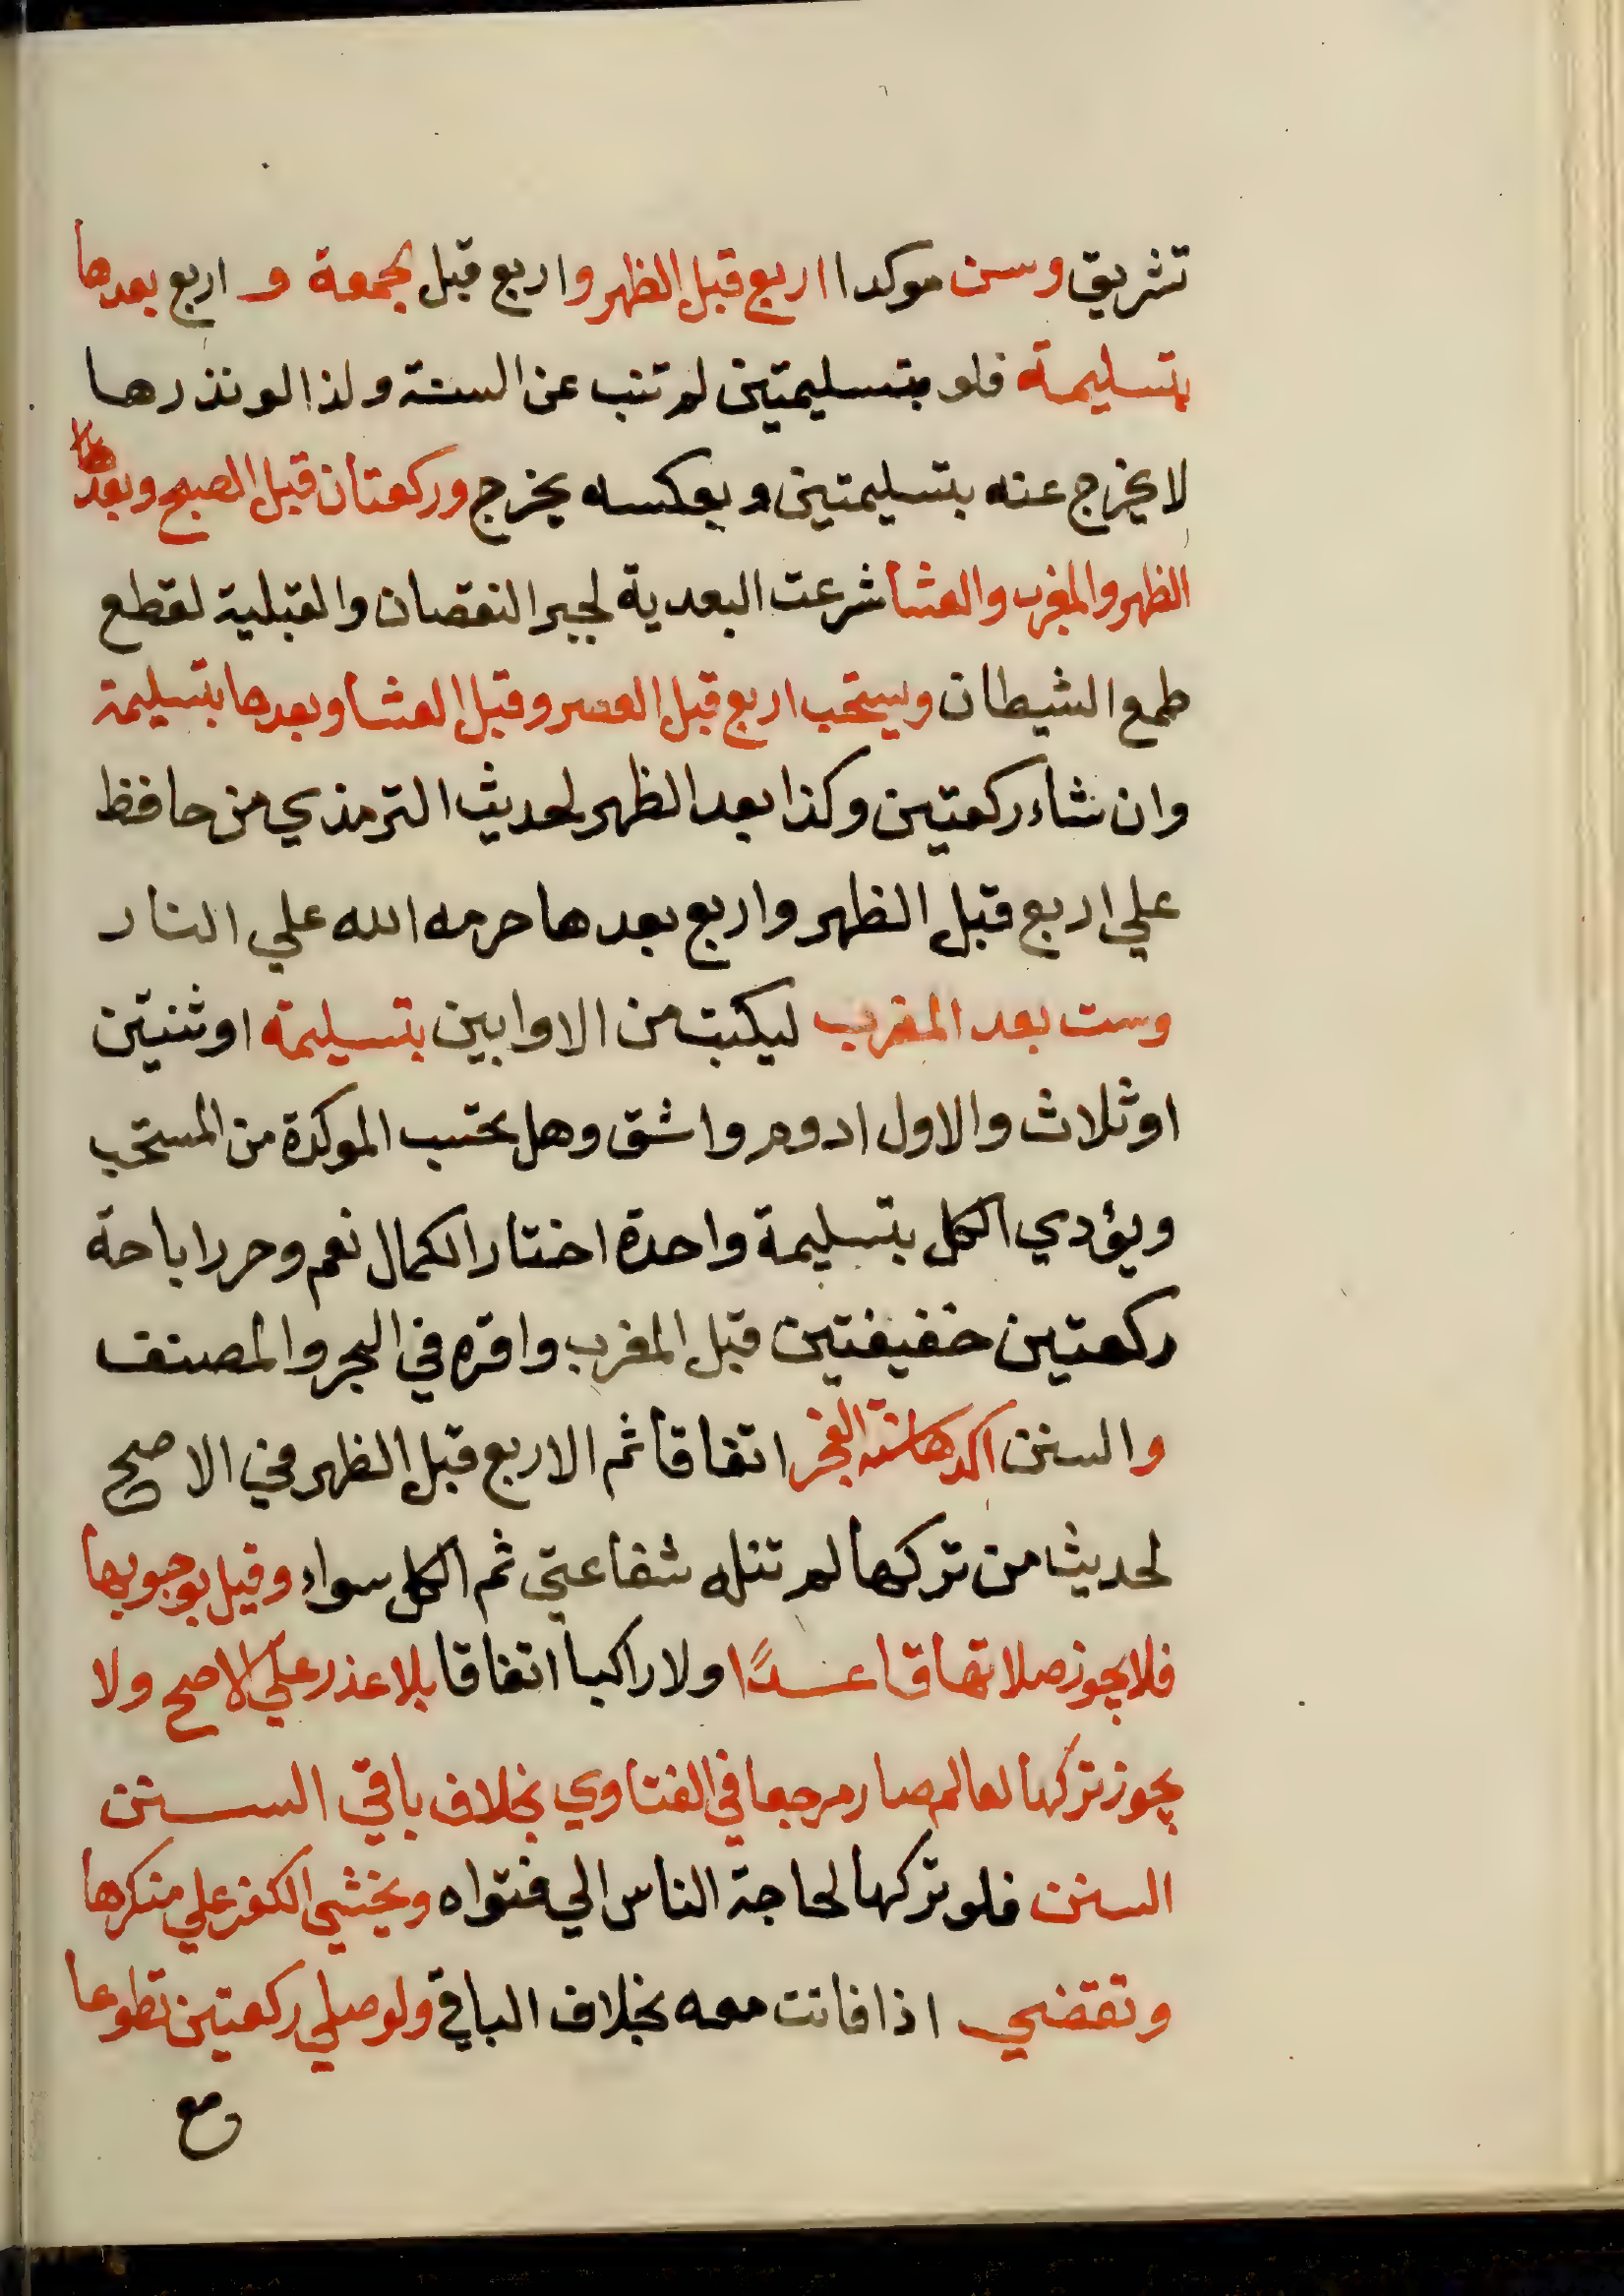 تشريق وسن موكدا اربع قبل الظهر واربع قبل لجمعة و اربع بعدها
بتسليمة فلو بتسليمتين لم تنب عن السنة ولذا لو نذرها
لا يخرج عنه بتسليمتين وبعكسه يخرج وركعتان قبل الصبح وبعد
الظهر والمغرب والعشا شرعت البعدية لجبر النقصان والقبلية لقطع
طمع الشيطان ويستحب اربع قبل العصر وقبل العشا وبعدها بتسليمة
وان شاء ركعتين وكذا بعد الظهر لحديث الترمذي من حافظ
علي اربع قبل الظهر واربع بعدها حرمه الله علي النار
وست بعد المغرب ليكتب من الاوابين بتسليمة او ثنتين
او ثلاث والاول ادوم واشق وهل يحتسب الموكدة من المستحب
ويؤدي الكل بتسليمة واحدة اختار الكمال نعم وحرر اباحة
ركعتين خفيفتين قبل المغرب واقره في البحر والمصنف
والسنن اكدها سنة الفجر اتفاقا ثم الاربع قبل الظهر في الاصح
لحديث من تركها لم تنله شفاعتي ثم الكل سواء وقيل بوجوبها
فلا يجوز صلاتها قاعدًا ولا راكبا اتفاقا بلا عذر علي الاصح ولا
يجوز تركها لعالم صار مرجعا في الفتاوي بخلاف باقي السنن
السنن فلو تركها لحاجة الناس الي فتواه ويخشي الكفر علي منكرها
وتقضي اذا فاتت معه بخلاف الباقي ولو صلي ركعتين تطوعا
مع